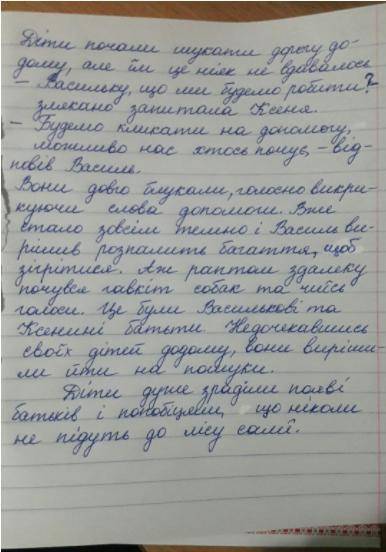 Діти почали шукати дорогу до-
дому, але їм це ніяк не вдавалось
– Васильку, що ми будемо робити?
злякано запитала Ксеня.
– Будемо кликати на допомогу,
можливо нас хтось почує, – від-
повів Василь.
Вони довго блукали, голосно викри-
куючи слова допомоги. Вже
стало зовсім темно і Василь ви-
рішив розпалить багаття, щоб
зігрітися. Аж раптом здалеку
почувся гавкіт собак та чиїсь
голоси. Це були Василькові та
Ксенині батьти. Недочекавшись
своїх дітей додому, вони виріши-
ли йти на пошуки.
Діти дуже зраділи появі
батьків і пообіцяли, що ніколи
не підуть до лісу самі.